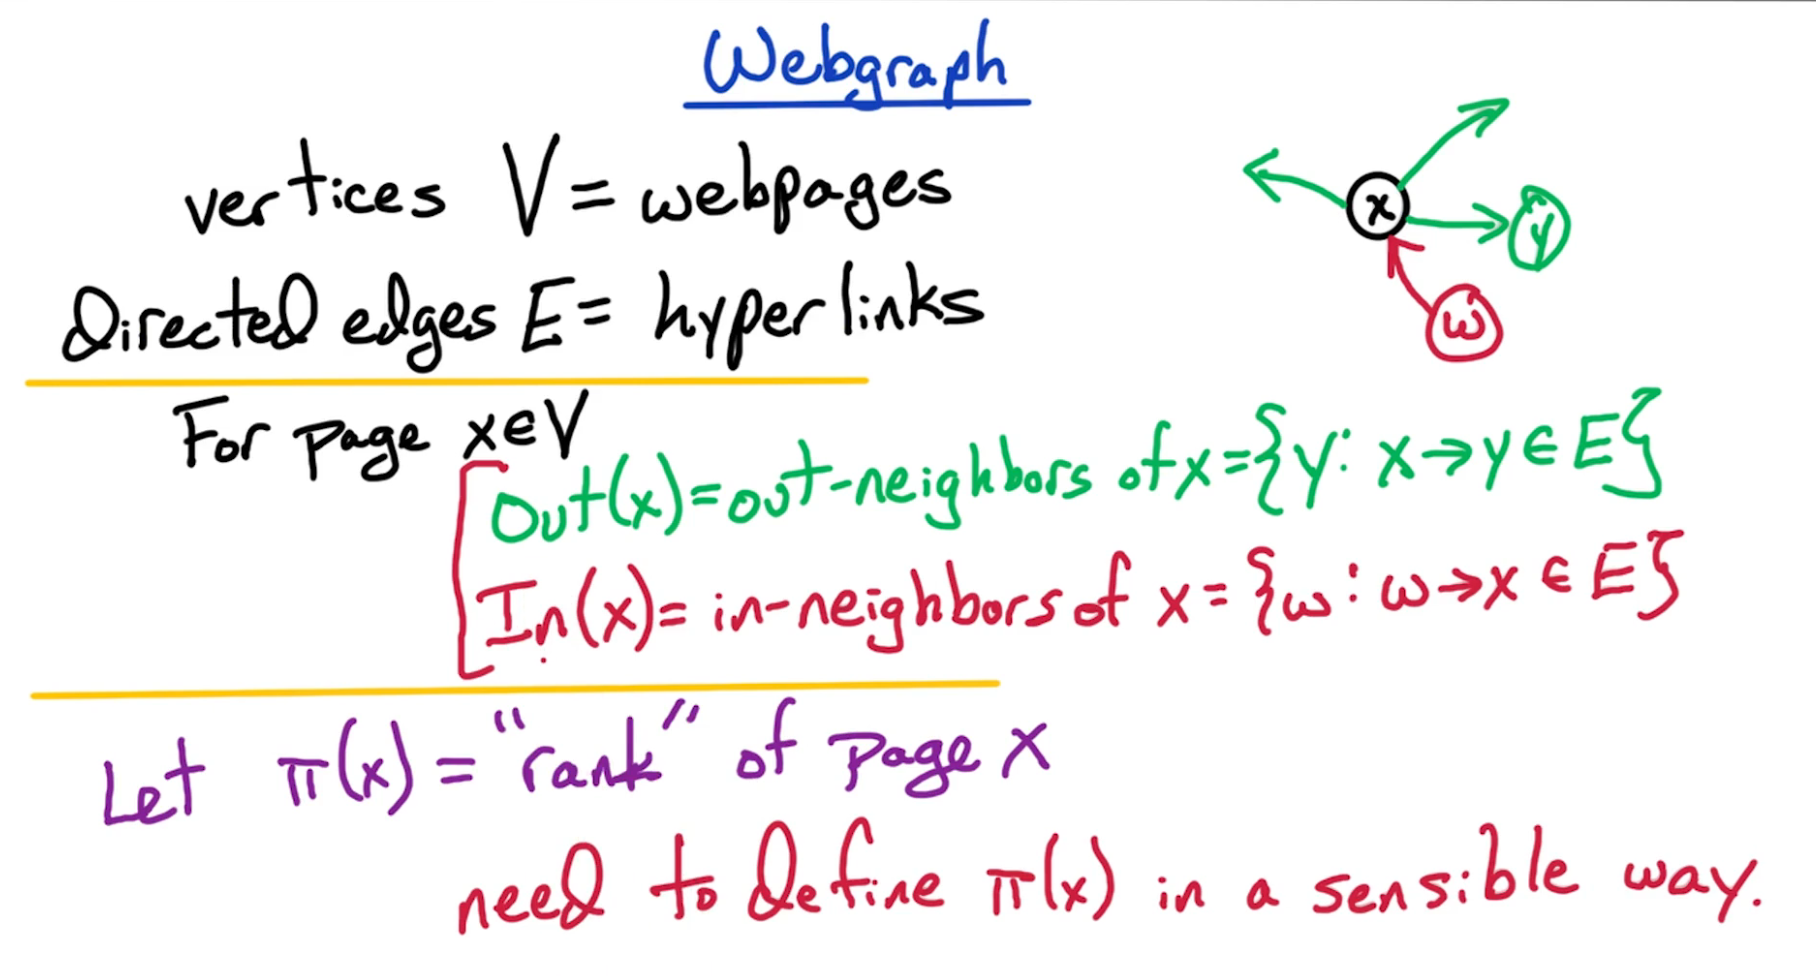 Webgraph
vertices V = webpages
Directed edges E = hyperlinks
x
y
w
For page x∈V
Out(x)=out-neighbors of x={y: x→y∈E}
In(x)= in-neighbors of x= {w: w→x ∈ E}
Let π(x) = "rank" of page x
need to define π(x) in a sensible way.